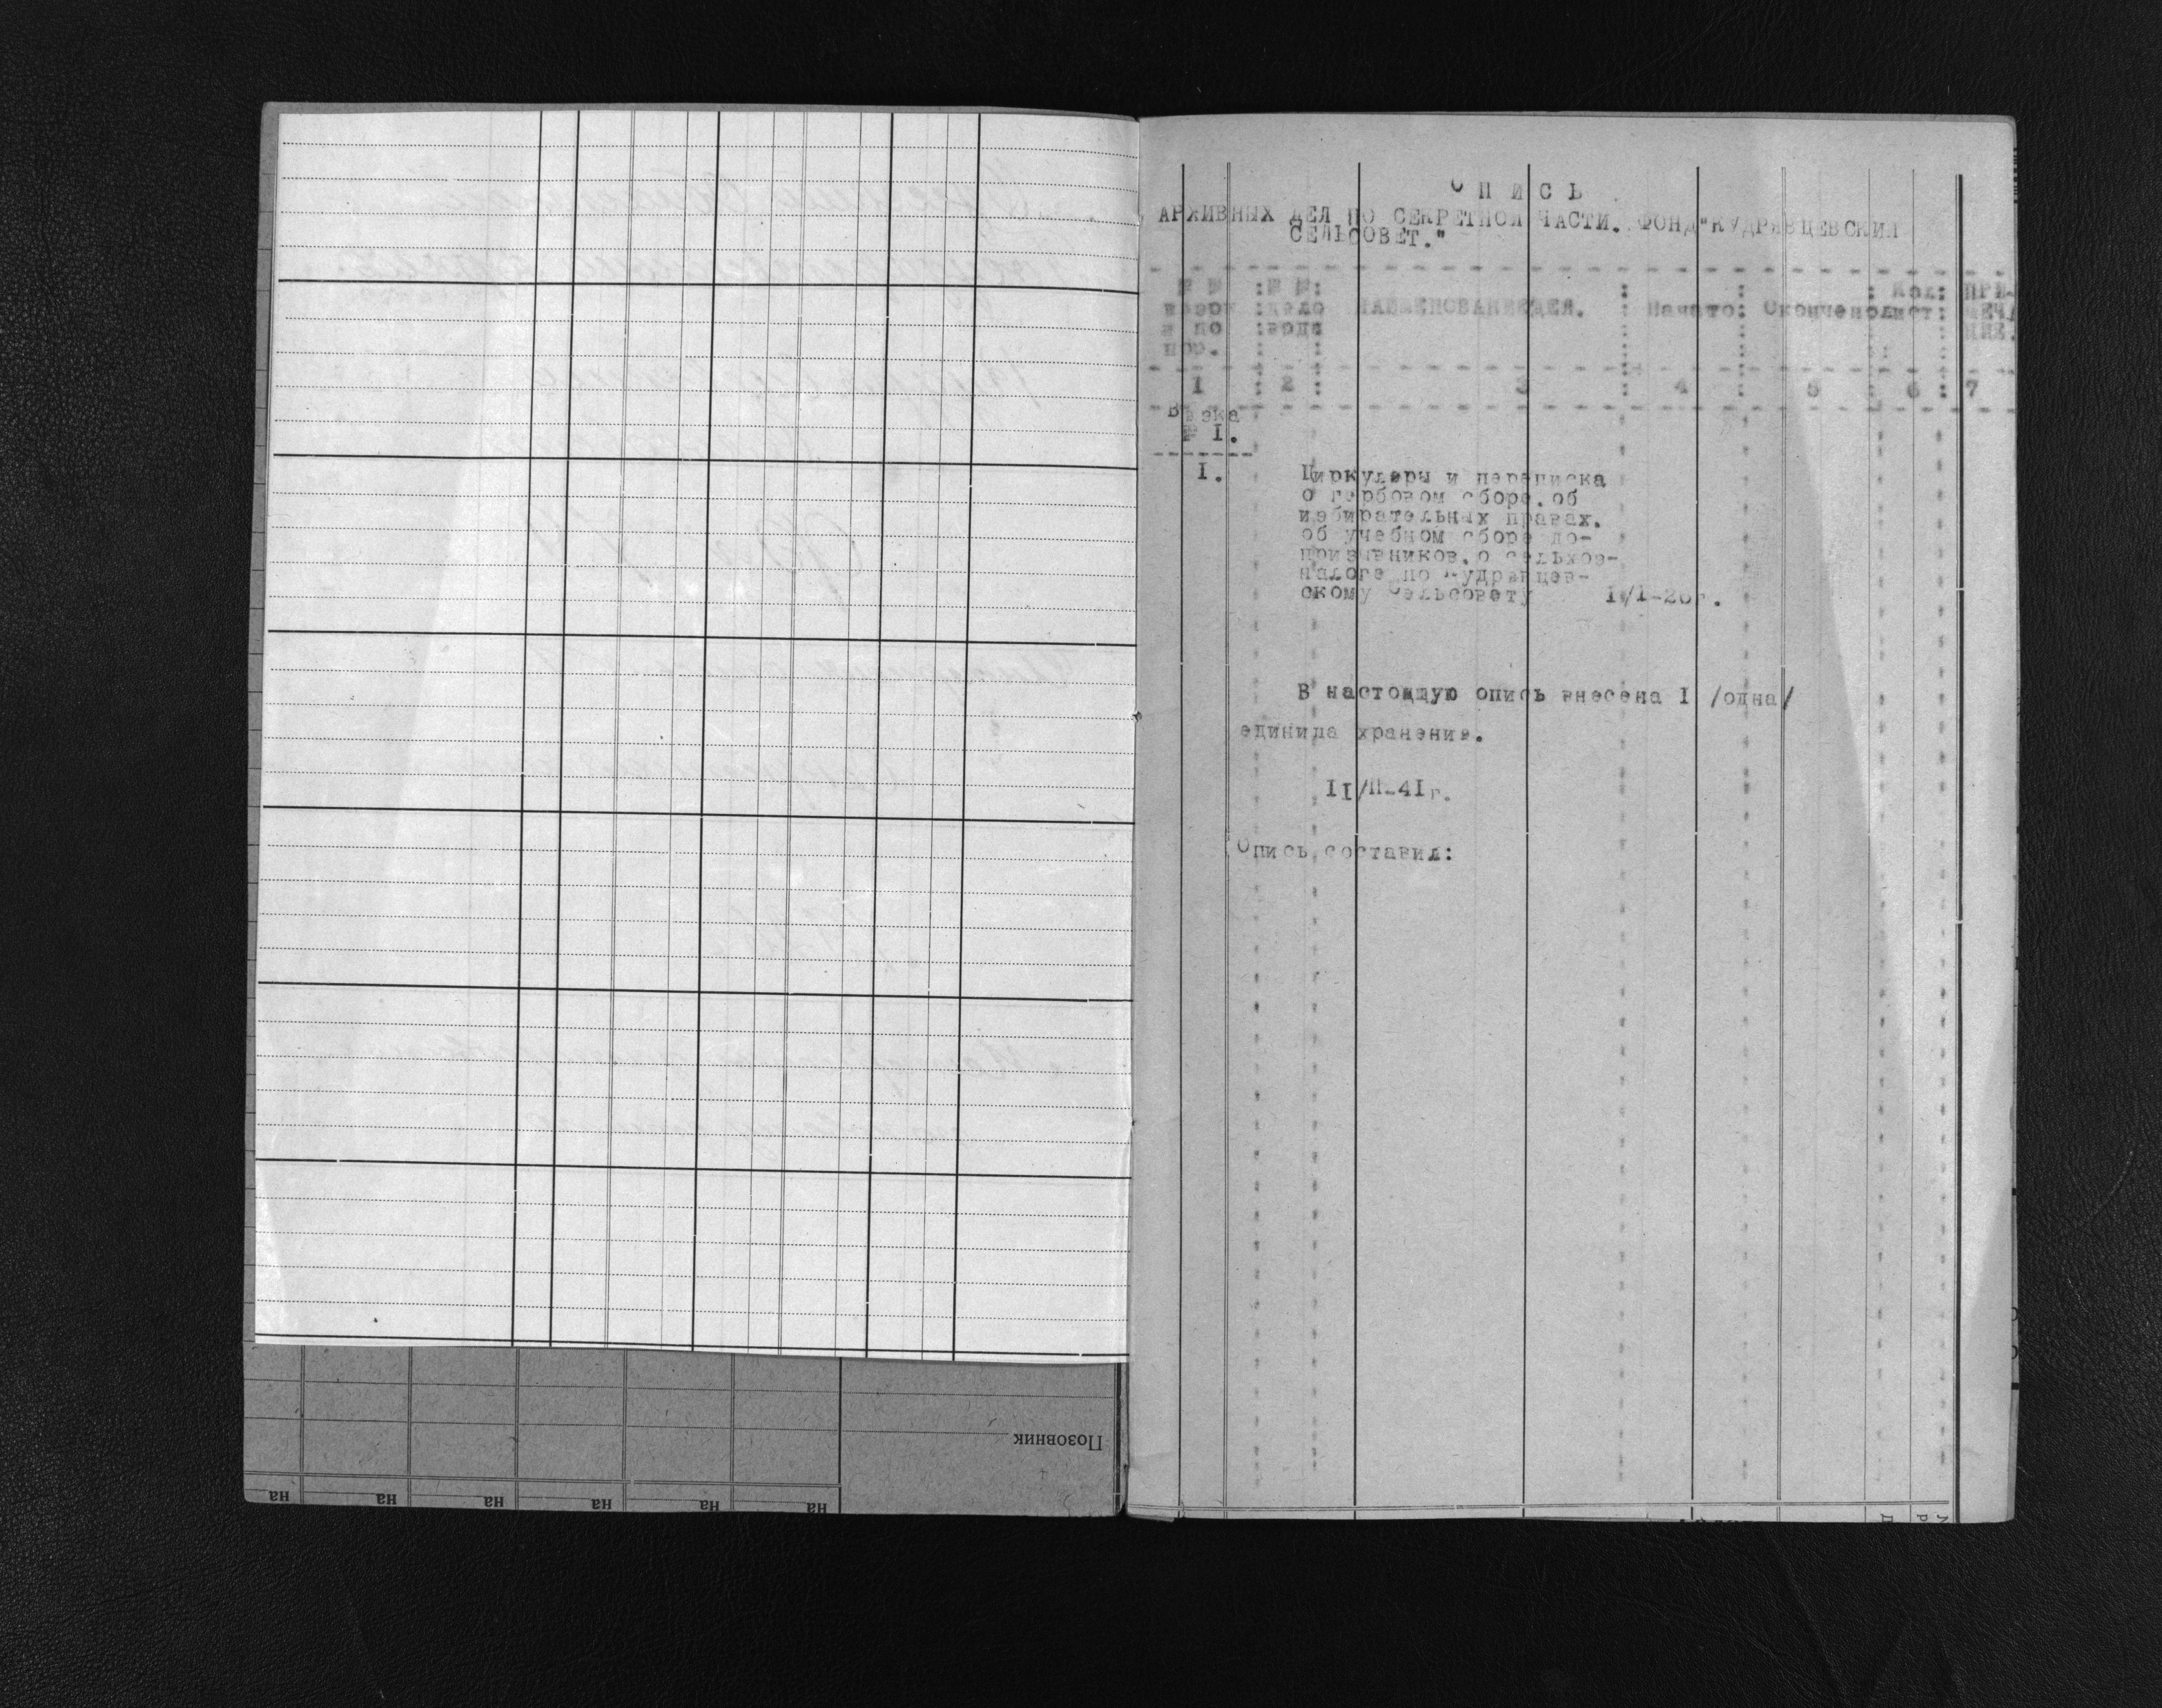 О П И С Ь
АРХИВНЫХ ДЕЛ ПО СЕКРЕТНОЙ ЧАСТИ. ФОНД "КУДРЯВЦЕВСКИЙ
СЕЛЬСОВЕТ."
№ № :№ №: : : : Кол: ПРИ-
:дело НАИМЕНОВАНИЕ ДЕЛ. : Начато: Окончено лист: МЕЧА
п по :вода НИЕ.
пор.
1 : 2 : 3 : 4 : 5 : 6 : 7
Вязка
№ I.
I. Циркуляры и переписка
о гербовом сборе, об
избирательных правах,
об учебном сборе до-
призывников, о сельхоз-
налоге по Кудрявцев-
скому Сельсовету I/I-26г.
В настоящую опись внесена I /одна/
единица хранения.
II/II-41г.
Опись составил:
Позовник
на на на на на на